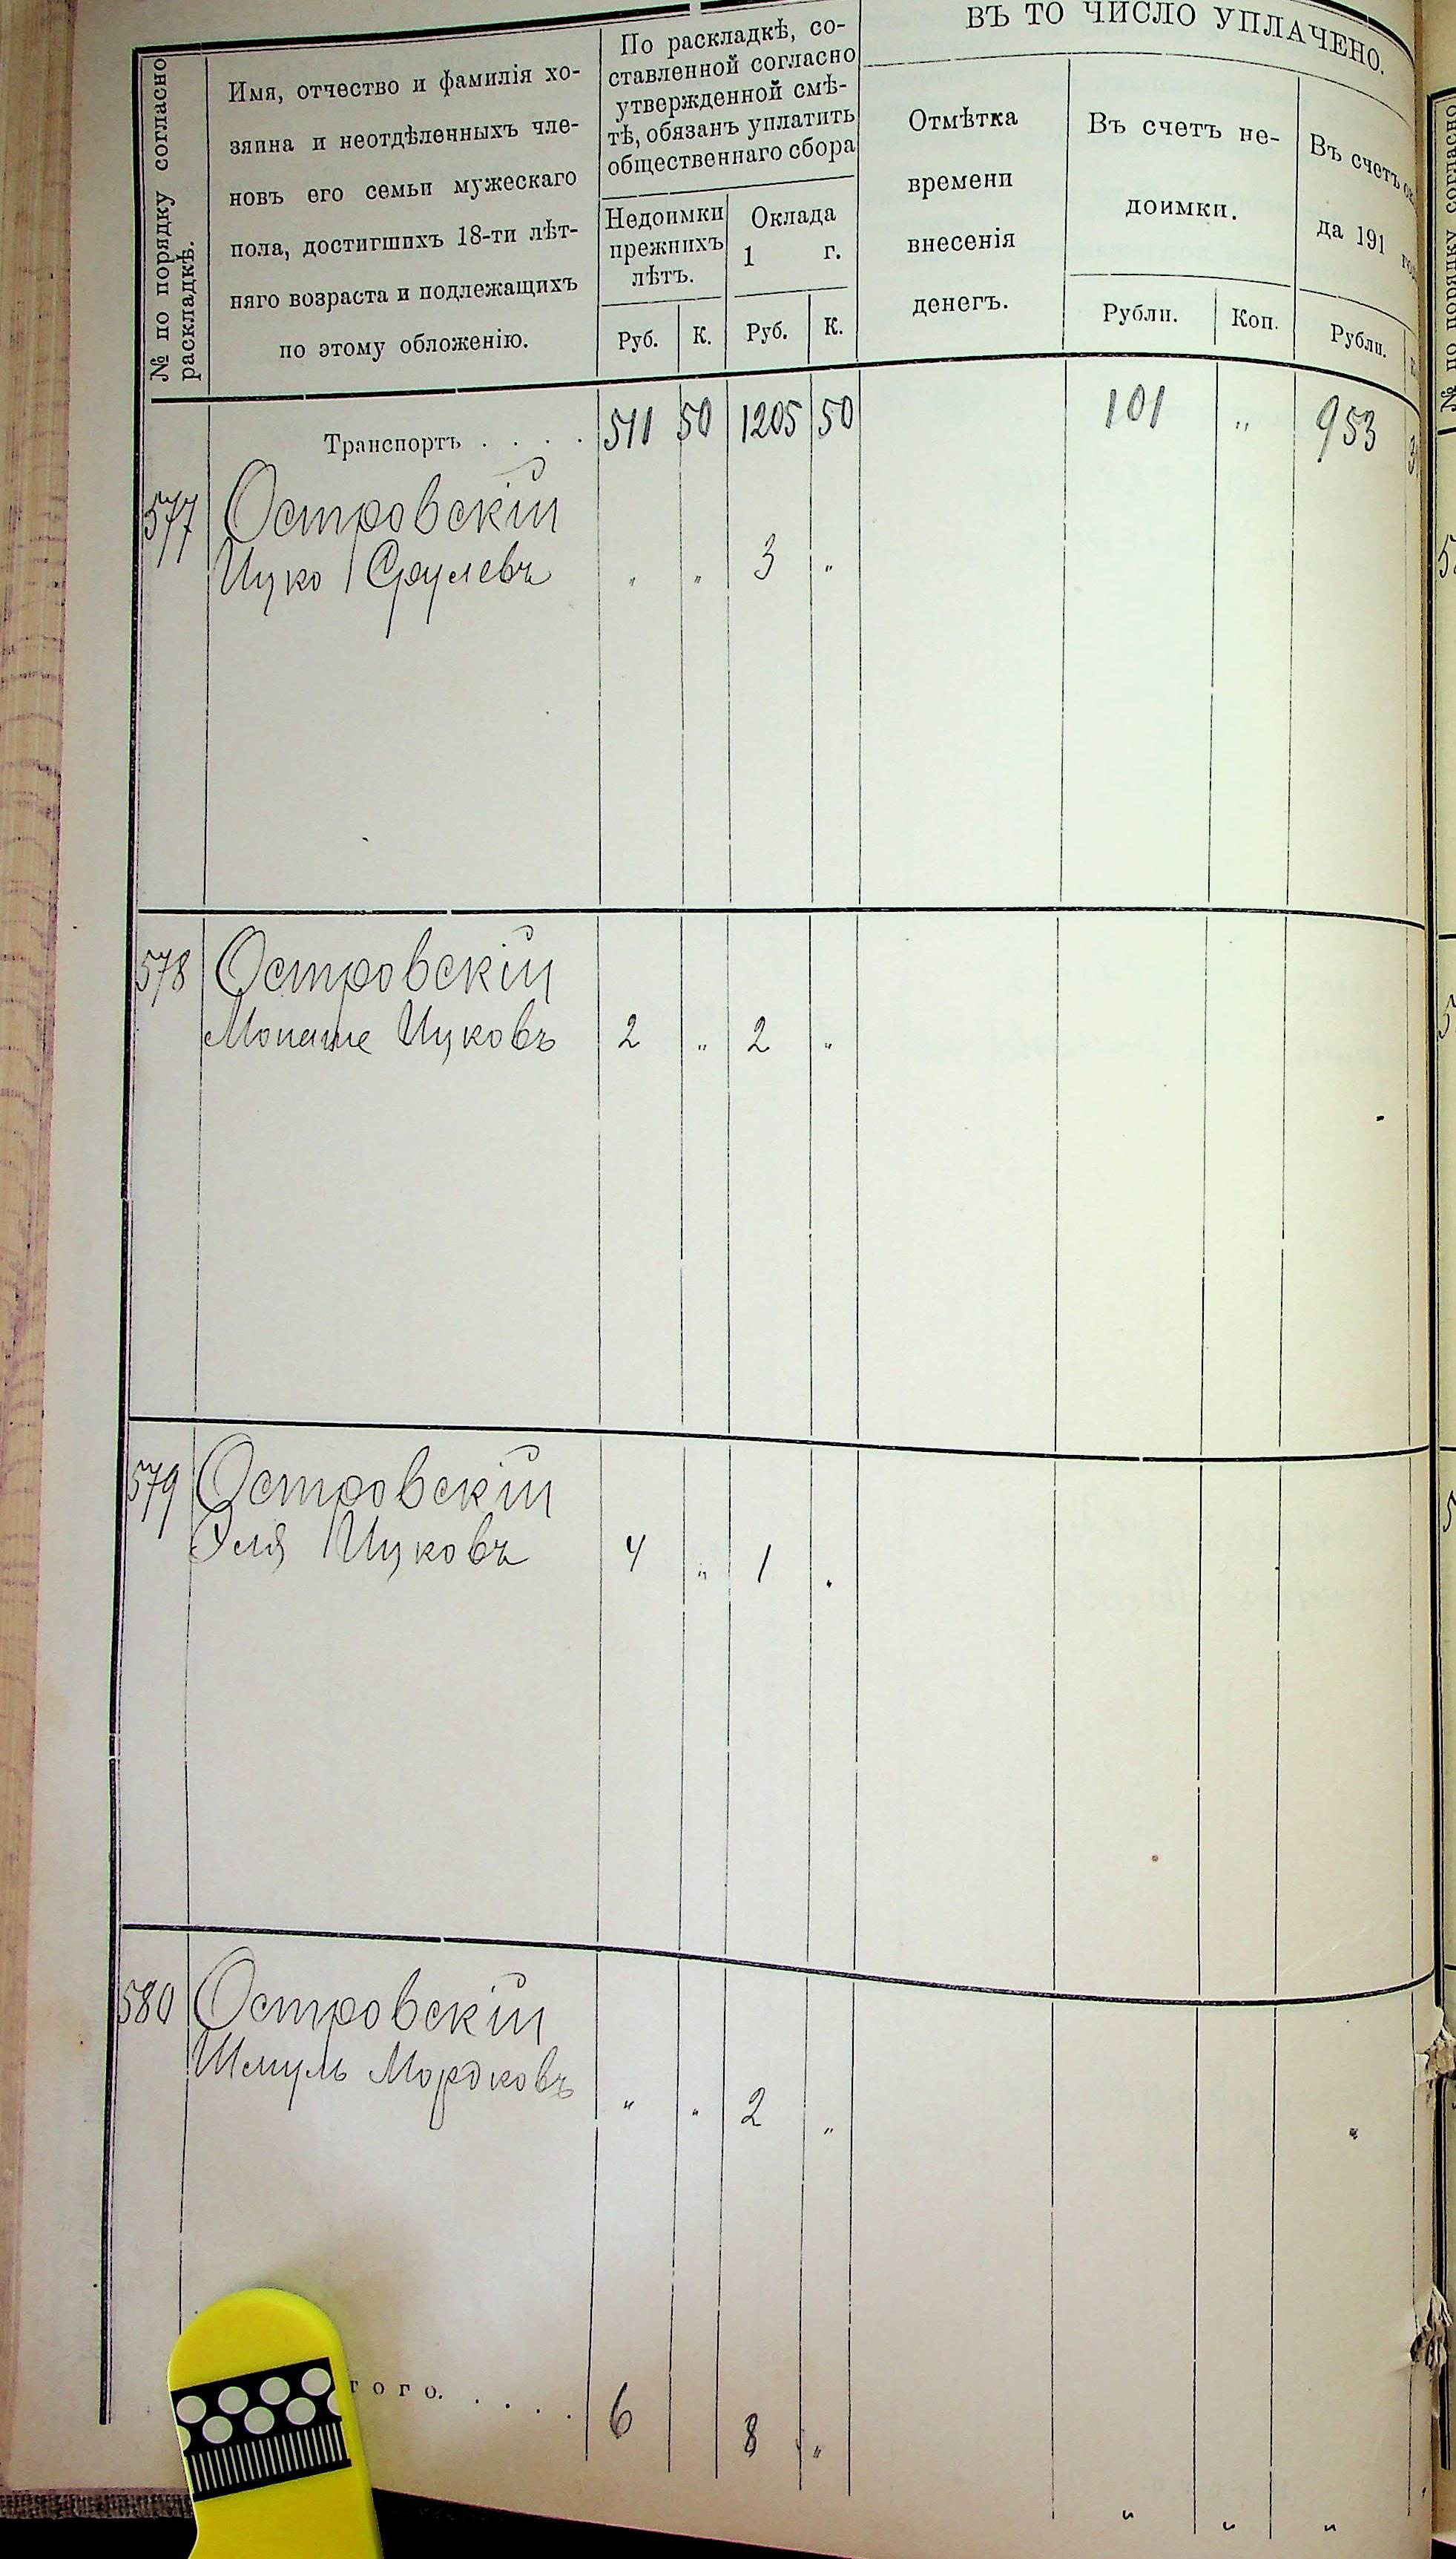 № по порядку согласно
раскладкѣ.
Имя, отчество и фамилія хо-
зяина и неотдѣленныхъ чле-
новъ его семьи мужескаго
пола, достигшихъ 18-ти лѣт-
няго возраста и подлежащихъ
по этому обложенію.
По раскладкѣ, со-
ставленной согласно
утвержденной смѣ-
тѣ, обязанъ уплатить
общественнаго сбора
Недоимки
прежнихъ
лѣтъ.
Оклада
1 г.
Руб. К. Руб. К.
ВЪ ТО ЧИСЛО УПЛАЧЕНО.
Отмѣтка
времени
внесенія
денегъ.
Въ счетъ не-
доимки.
Рубли. Коп.
Въ счетъ
да 191
Рубли.
Транспортъ . . . . 511 50 1205 50 101 " 953
577 Островскій
Ицко Срулевъ " " 3 "
578 Островскій
Монаше Ицковъ 2 " 2 "
579 Островскій
Эля Ицковъ 4 " 1 "
580 Островскій
Шмуль Мордковъ " " 2 " "
того. . . . . 6 8 "
" " "
№ по порядку согласно